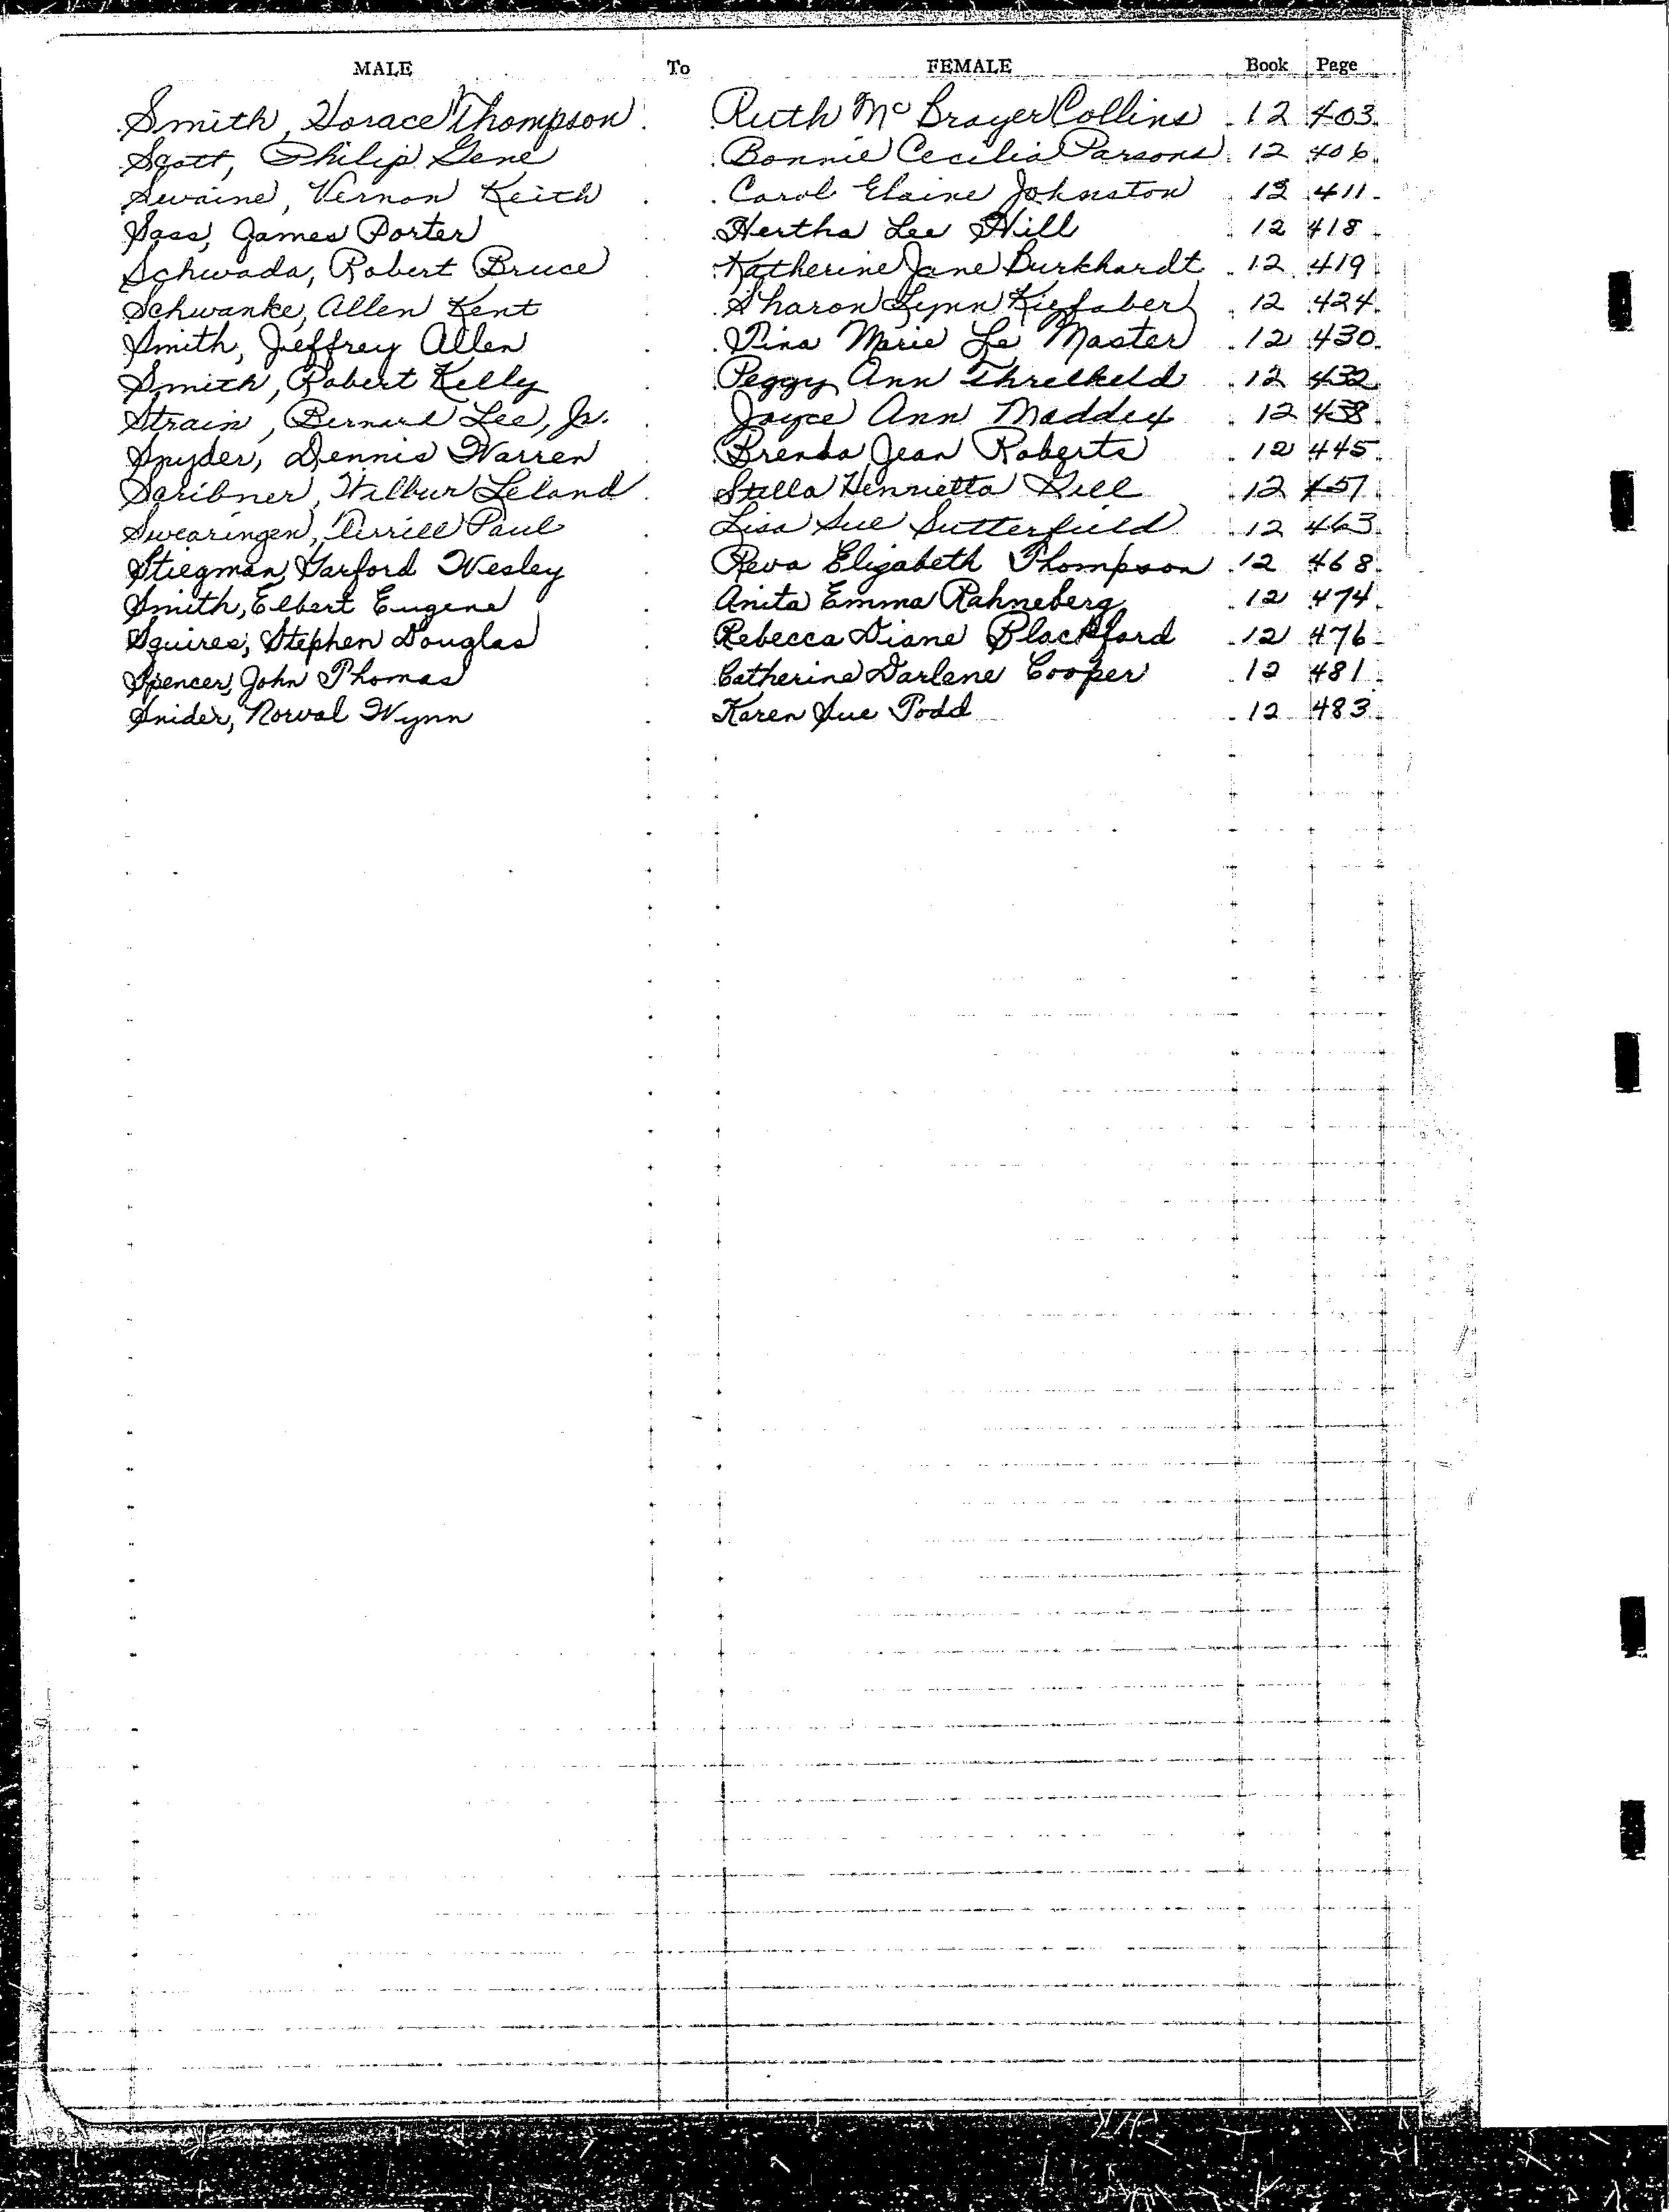 MALE To FEMALE Book Page
Smith, Horace Thompson Ruth Mc Brayer Collins 12 403
Scott, Philip Gene Bonnie Cecilia Parsons 12 406
Swaine, Vernon Keith Carol Elaine Johnston 12 411
Sass, James Porter Hertha Lee Hill 12 418
Schwada, Robert Bruce Katherine Jane Burkhardt 12 419
Schwanke, Allen Kent Sharon Lynn Kiefaber 12 424
Smith, Jeffrey Allen Tina Marie Le Master 12 430
Smith, Robert Kelly Peggy Ann Threlkeld 12 432
Strain, Bernard Lee, Jr. Joyce Ann Maddex 12 438
Snyder, Dennis Warren Brenda Jean Roberts 12 445
Scribner, Wilbur Leland Stella Henrietta Gill 12 457
Swearingen, Terrill Paul Lisa Sue Sutterfield 12 463
Stiegman, Garford Wesley Reva Elizabeth Thompson 12 468
Smith, Elbert Eugene Anita Emma Rahneberg 12 474
Squires, Stephen Douglas Rebecca Diane Blackford 12 476
Spencer, John Thomas Catherine Darlene Cooper 12 481
Snider, Norval Wynn Karen Sue Todd 12 483